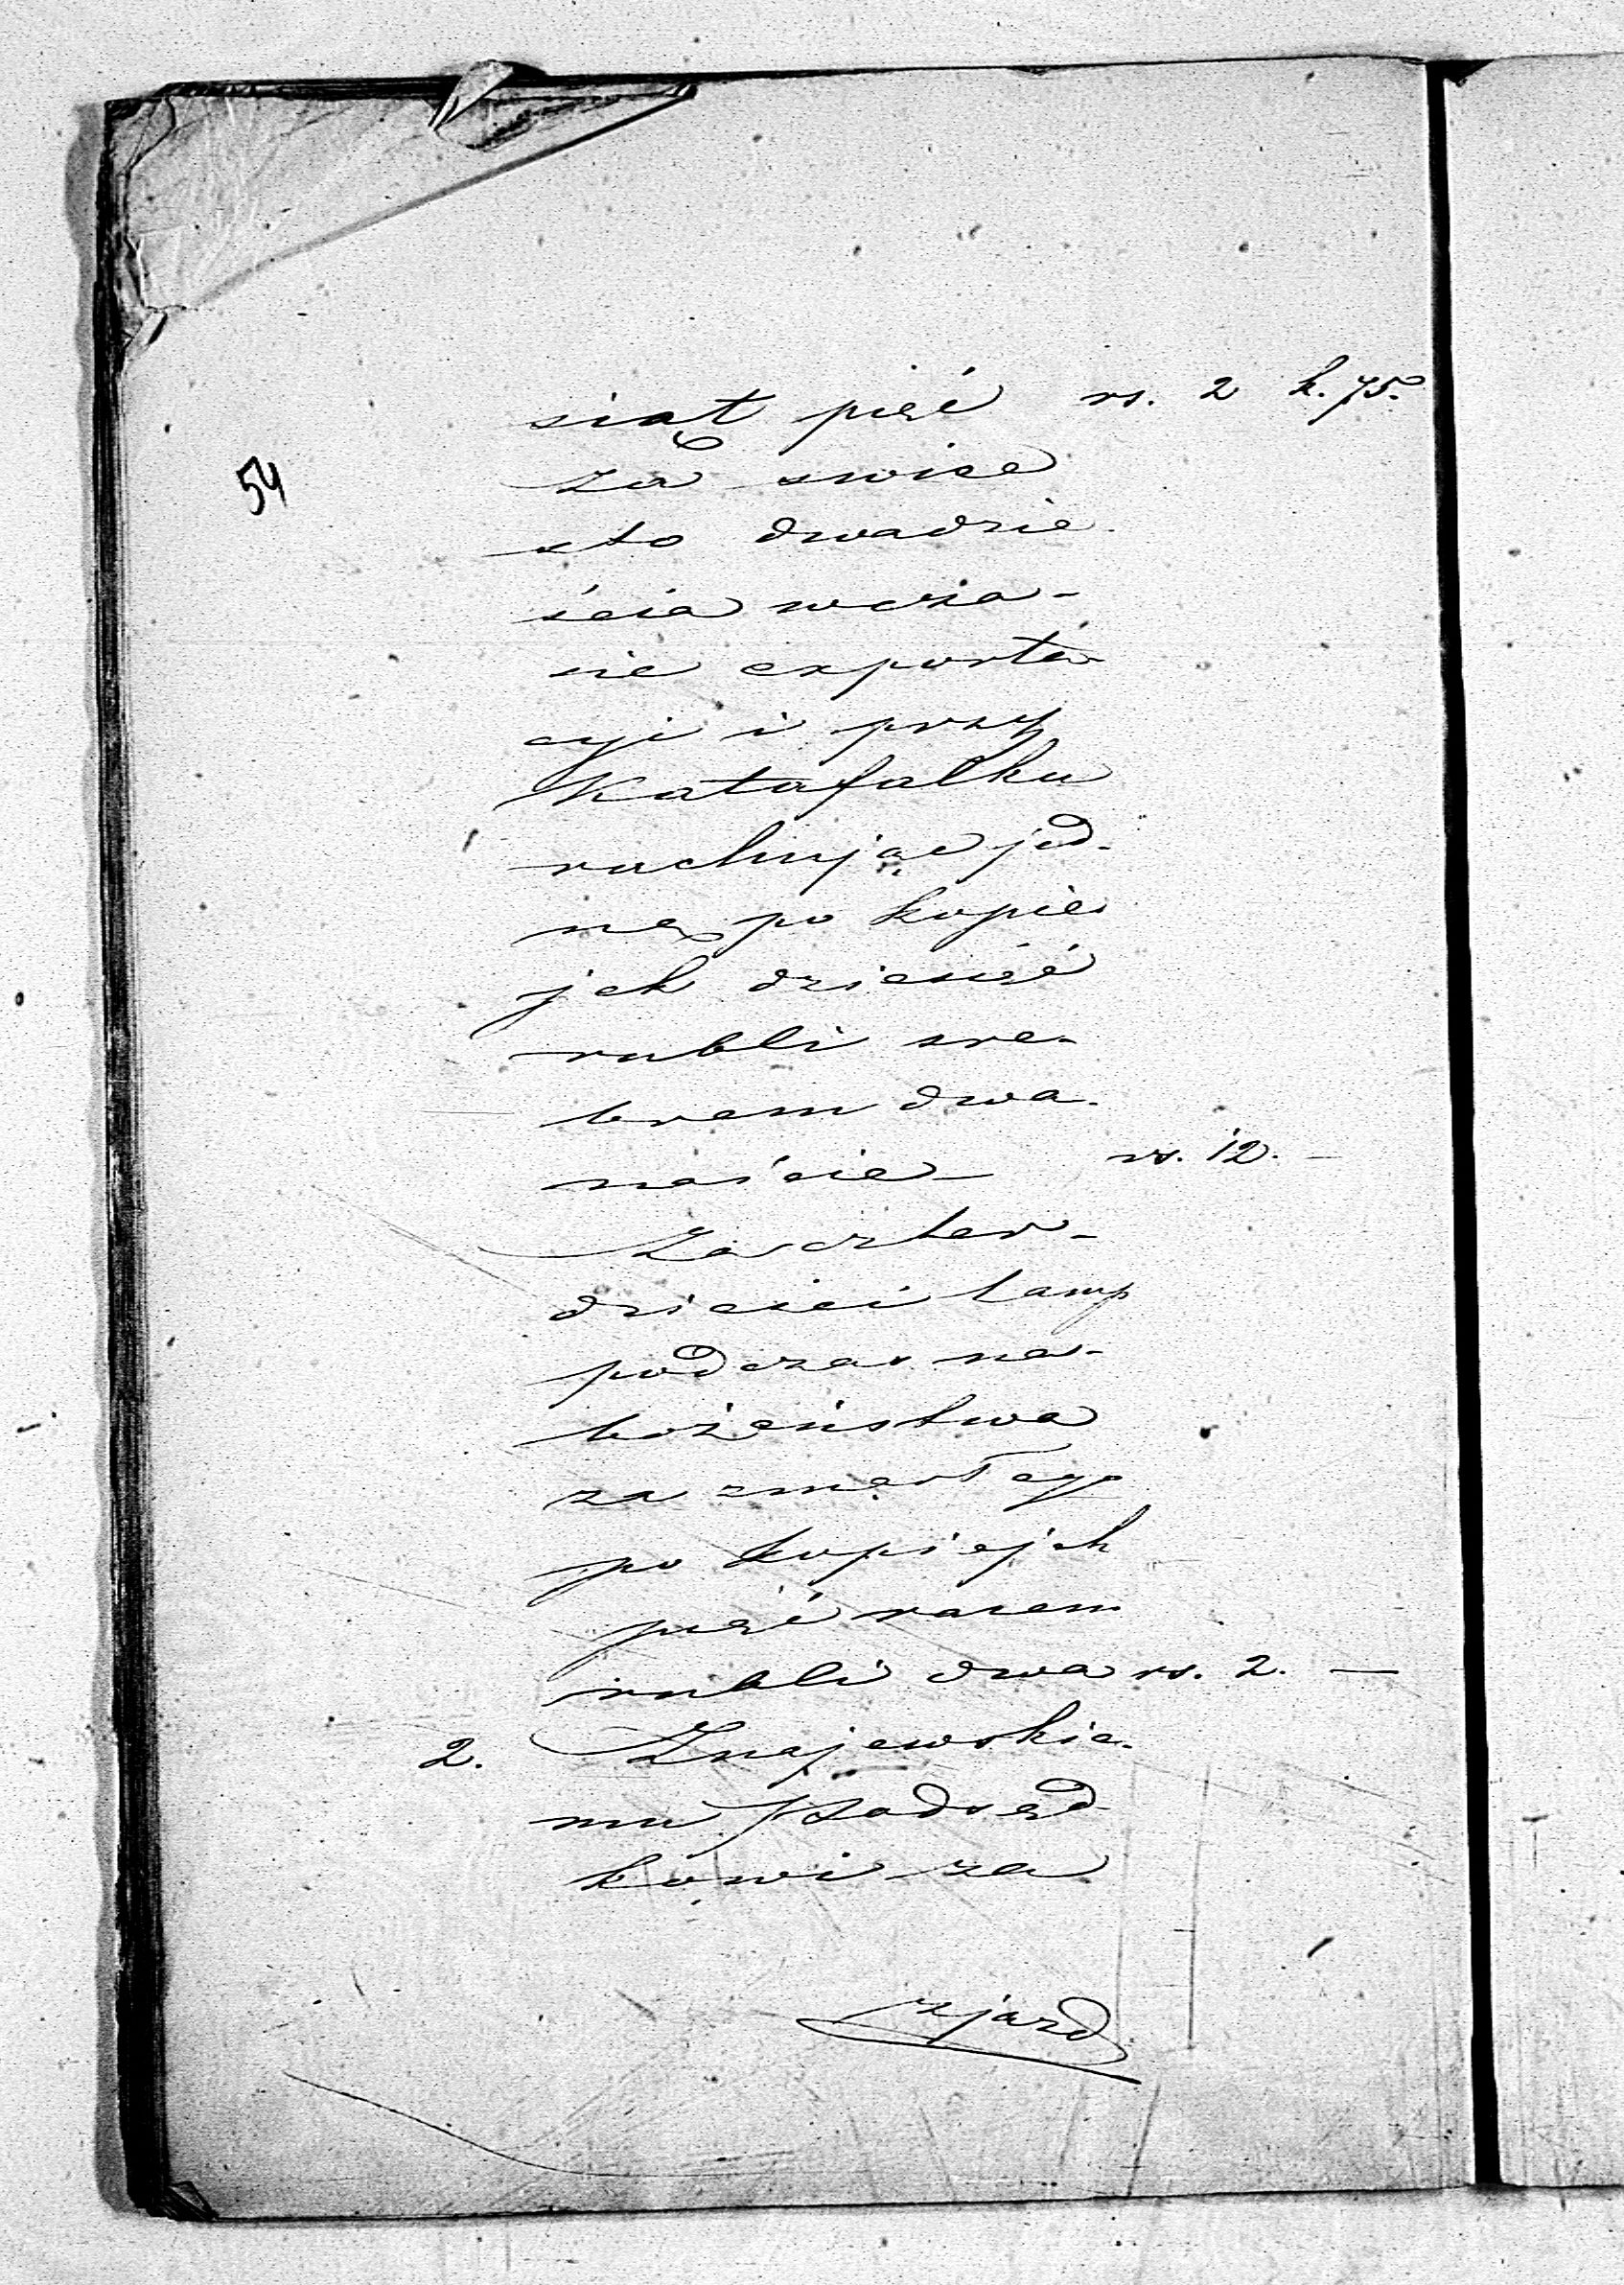 siąt pięć rs. 2 k. 75.
54
Za swiec
sto dwadzie
ścia w cza-
sie exporta
cyi i przy
Katafalku
rachując jed-
nę po kopie
jek dziesięć
rubli sre-
brem dwa-
naście rs. 12. —
Za czter-
dzieści lamp
podczas na-
bożeństwa
za zmarłego
po kopiejek
pięć razem
rubli dwa rs. 2. —
2. Znajewskie-
mu
kowi za
zjazd